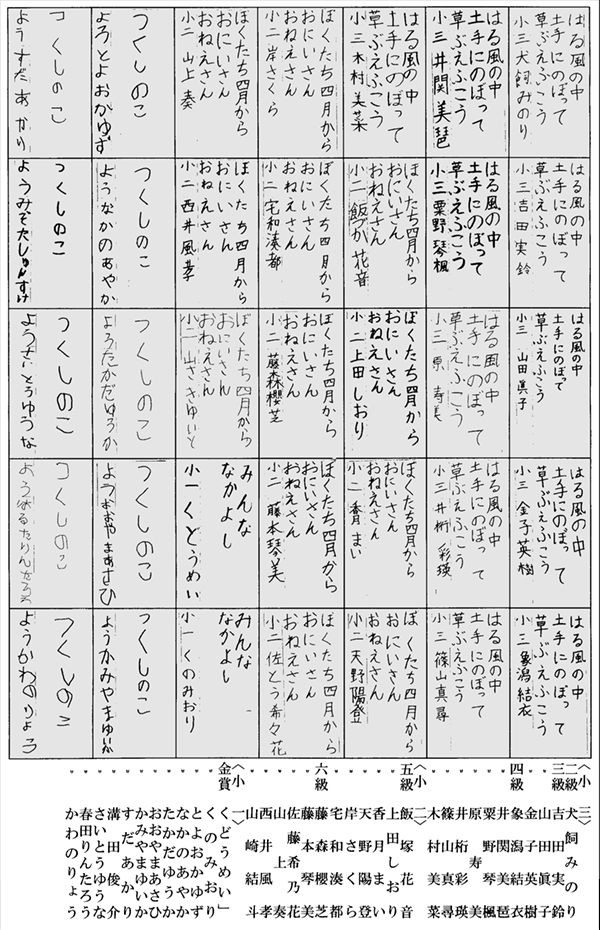 はる風の中
土手にのぼって
草ぶえふこう
小三 犬飼みのり
はる風の中
土手にのぼって
草ぶえふこう
小三 吉田実鈴
はる風の中
土手にのぼって
草ぶえふこう
小三 山田眞子
はる風の中
土手にのぼって
草ぶえふこう
小三 金子英樹
はる風の中
土手にのぼって
草ぶえふこう
小三 象潟結衣
はる風の中
土手にのぼって
草ぶえふこう
小三 井関美琶
はる風の中
土手にのぼって
草ぶえふこう
小三 粟野琴楓
はる風の中
土手にのぼって
草ぶえふこう
小三 原寿美
はる風の中
土手にのぼって
草ぶえふこう
小三 井桁彩瑛
はる風の中
土手にのぼって
草ぶえふこう
小三 篠山真尋
はる風の中
土手にのぼって
草ぶえふこう
小三 木村美菜
ぼくたち四月から
おにいさん
おねえさん
小二 飯づか花音
ぼくたち四月から
おにいさん
おねえさん
小二 上田しおり
ぼくたち四月から
おにいさん
おねえさん
小二 香月まい
ぼくたち四月から
おにいさん
おねえさん
小二 天野陽登
ぼくたち四月から
おにいさん
おねえさん
小二 岸さくら
ぼくたち四月から
おにいさん
おねえさん
小二 宅和湊都
ぼくたち四月から
おにいさん
おねえさん
小二 藤森櫻芝
ぼくたち四月から
おにいさん
おねえさん
小二 藤本琴美
ぼくたち四月から
おにいさん
おねえさん
小二 佐とう希々花
ぼくたち四月から
おにいさん
おねえさん
小二 山上奏
ぼくたち四月から
おにいさん
おねえさん
小二 西井風孝
ぼくたち四月から
おにいさん
おねえさん
小二 山さきゆいと
みんな
なかよし
小一 くどうめい
みんな
なかよし
小一 くのみおり
つくしのこ
ようとよおかゆず
つくしのこ
ようなかのあやか
つくしのこ
ようたかだゆうか
つくしのこ
ようおおやまあさひ
つくしのこ
ようかみやまゆいか
つくしのこ
ようすだあかり
つくしのこ
ようみぞたしゅんすけ
つくしのこ
ようさいとうゆうな
つくしのこ
ようはるたりんたろう
つくしのこ
ようかわのりょう
〈小三〉
二級 犬飼みのり
三級 吉田実鈴
〃 山田眞子
〃 金子英樹
四級 象潟結衣
〃 井関美琶
〃 粟野琴楓
〃 原寿美
〃 井桁彩瑛
〃 篠山真尋
〃 木村美菜
〈小二〉
五級 飯塚花音
〃 上田しおり
〃 香月まい
〃 天野陽登
〃 岸さくら
〃 宅和湊都
六級 藤森櫻芝
〃 藤本琴美
〃 佐藤希乃花
〃 山上奏
〃 西井風孝
〃 山崎結斗
〈小一〉
金賞 くどうめい
〃 くのみおり
〃 とよおかゆず
〃 なかのあやか
〃 たかだゆうか
〃 おおやまあさひ
〃 かみやまゆいか
〃 すだあかり
〃 溝田俊介
〃 さいとうゆうな
〃 春田りんたろう
〃 かわのりょう